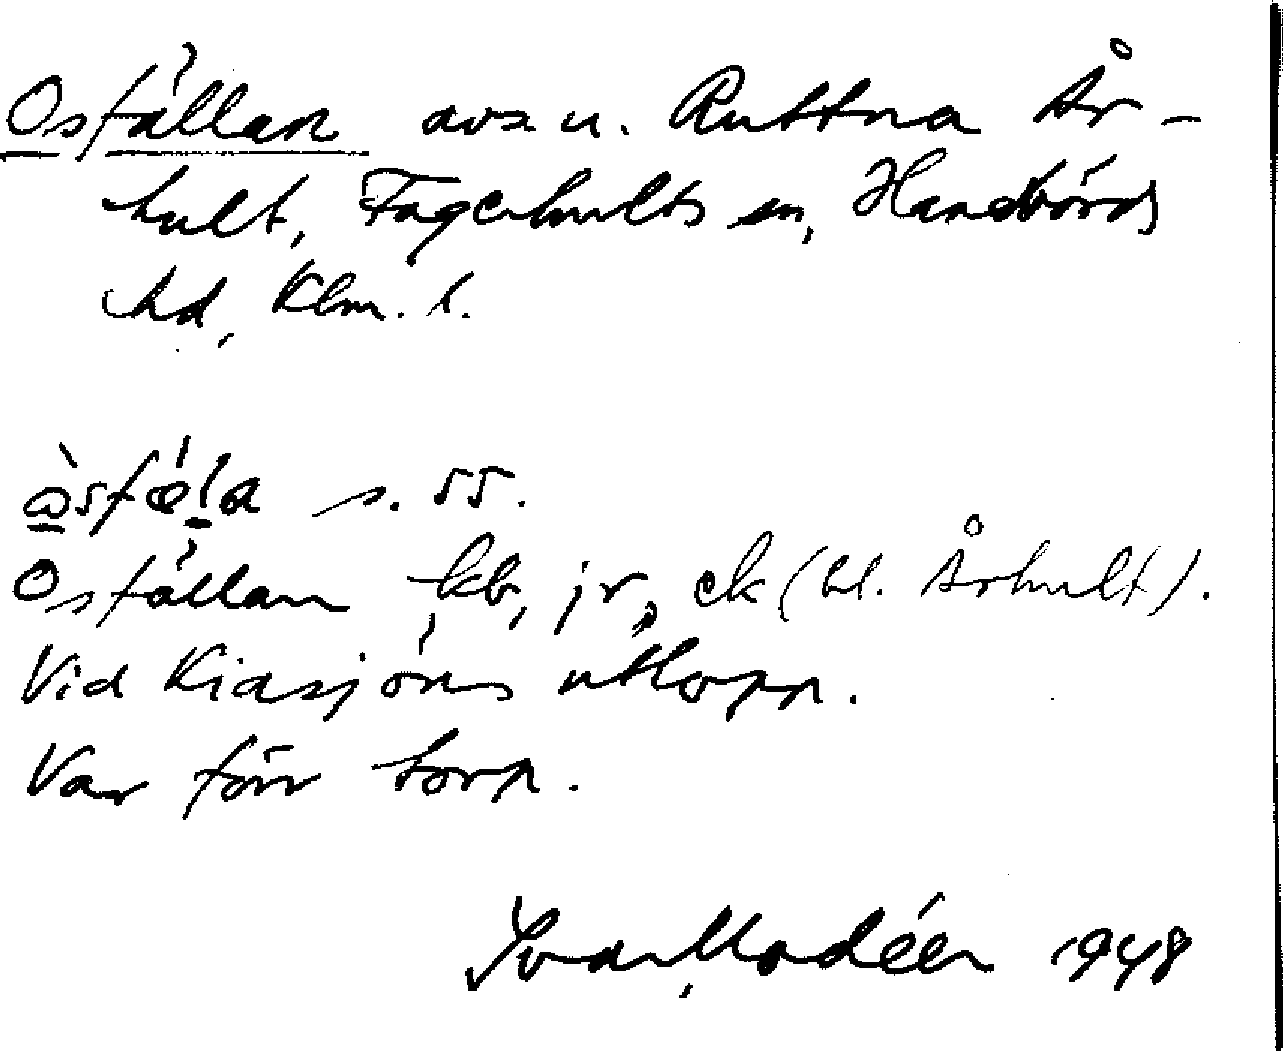 Osfällan avs. u. Ruttna År-
hult, Fagerhults sn, Handbörds
hd, Klm. l.
s. 55.
Osfällan kb, jr, ek (bl. Århult).
Vid Kiasjöns utlopp.
Var förr torp.
Ivar Modéer 1948